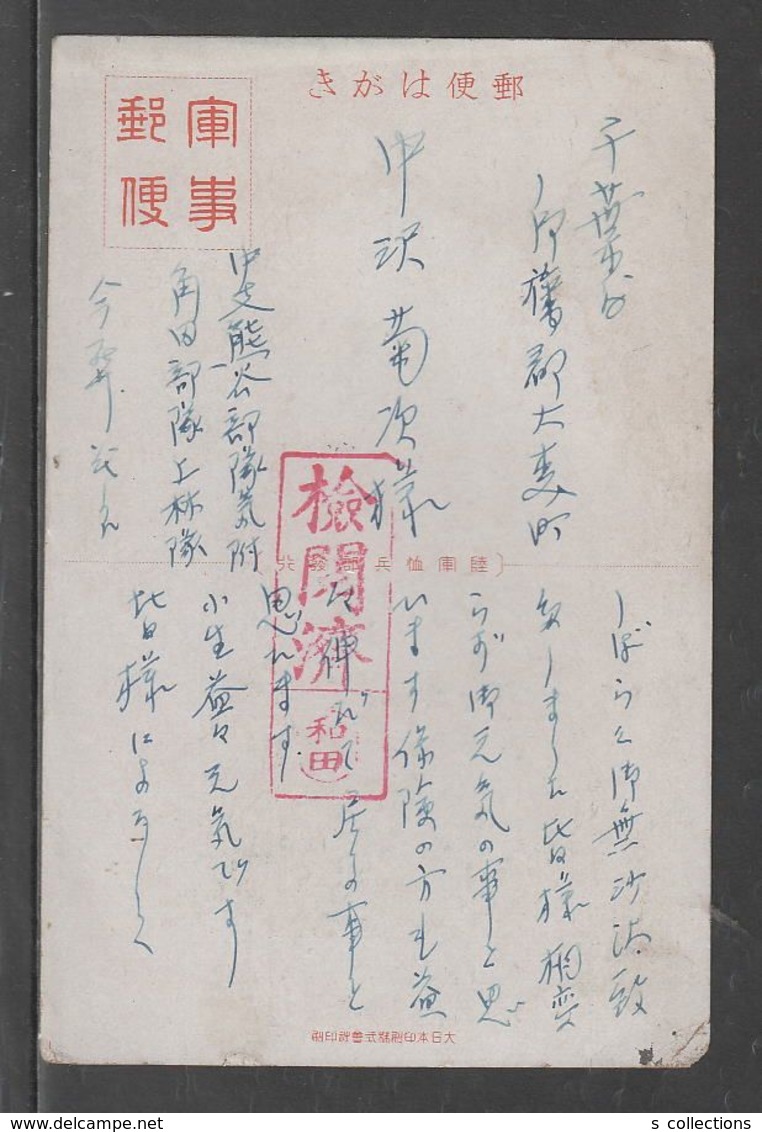 郵便はがき
軍事
郵便
千葉縣
夷隅郡大多喜町
中沢菊次様
中支熊谷部隊気附
角田部隊上林隊
今井
検閲済
和田
陸軍恤兵部發行
しばらく御無沙汰致
しました皆様相変
らず御元気の事と思
います保険の方も益
々伸びて居る事と
思ひます
小生益々元気です
皆様によろしく
大日本印刷株式會社印刷
s collections